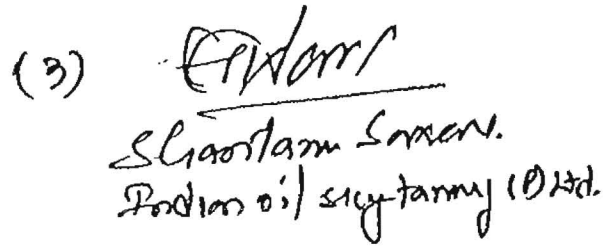 (3)
Shantanu Saxena.
Indian oil skytanking (P) Ltd.